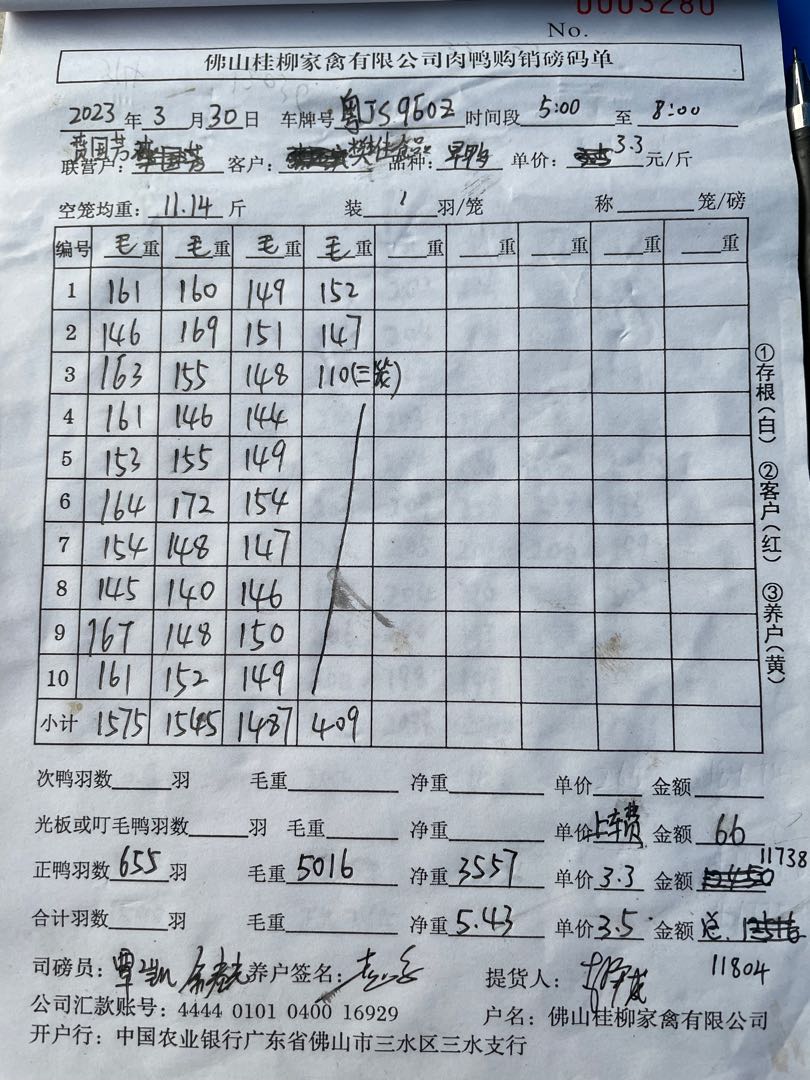 0003280
No.
佛山桂柳家禽有限公司肉鸭购销磅码单
2023 年 3 月 30 日 车牌号 粤JS9602 时间段 5:00 至 8:00
联营户: 黄国芳 客户: 樊仕 品种: 早鸭 单价: 3.3 元/斤
空笼均重: 11.14 斤 装 1 羽/笼 称 笼/磅
编号 毛重 毛重 毛重 毛重 重 重 重 重 重
1 161 160 149 152
2 146 169 151 147
3 163 155 148 110(三笼)
4 161 146 144
5 153 155 149
6 164 172 154
7 154 148 147
8 145 140 146
9 167 148 150
10 161 152 149
小计 1575 1545 1487 409
①存根(白) ②客户(红) ③养户(黄)
次鸭羽数 羽 毛重 净重 单价 金额
光板或叮毛鸭羽数 羽 毛重 净重 单价 上车费 金额 66
11738
正鸭羽数 655 羽 毛重 5016 净重 3557 单价 3.3 金额
合计羽数 羽 毛重 净重 5.43 单价 3.5 金额
11804
司磅员: 养户签名: 提货人:
公司汇款账号: 4444 0101 0400 16929 户名: 佛山桂柳家禽有限公司
开户行: 中国农业银行广东省佛山市三水区三水支行